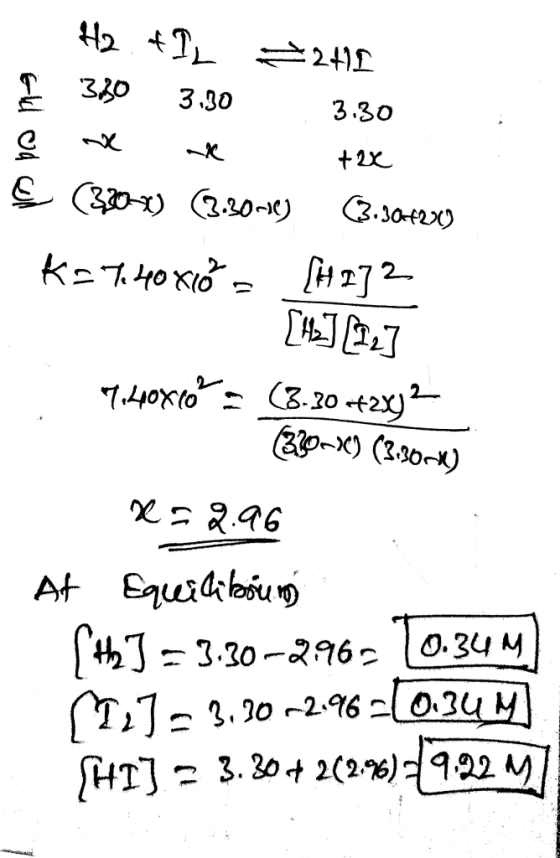 H2 + I2 ⇌ 2HI
I 3.30 3.30 3.30
C -x -x +2x
E (3.30-x) (3.30-x) (3.30+2x)
K = 7.40 x 10² = [HI]² / [H2][I2]
7.40x10² = (3.30+2x)² / (3.30-x) (3.30-x)
x = 2.96
At Equilibrium
[H2] = 3.30 - 2.96 = 0.34 M
[I2] = 3.30 - 2.96 = 0.34 M
[HI] = 3.30 + 2(2.96) = 9.22 M